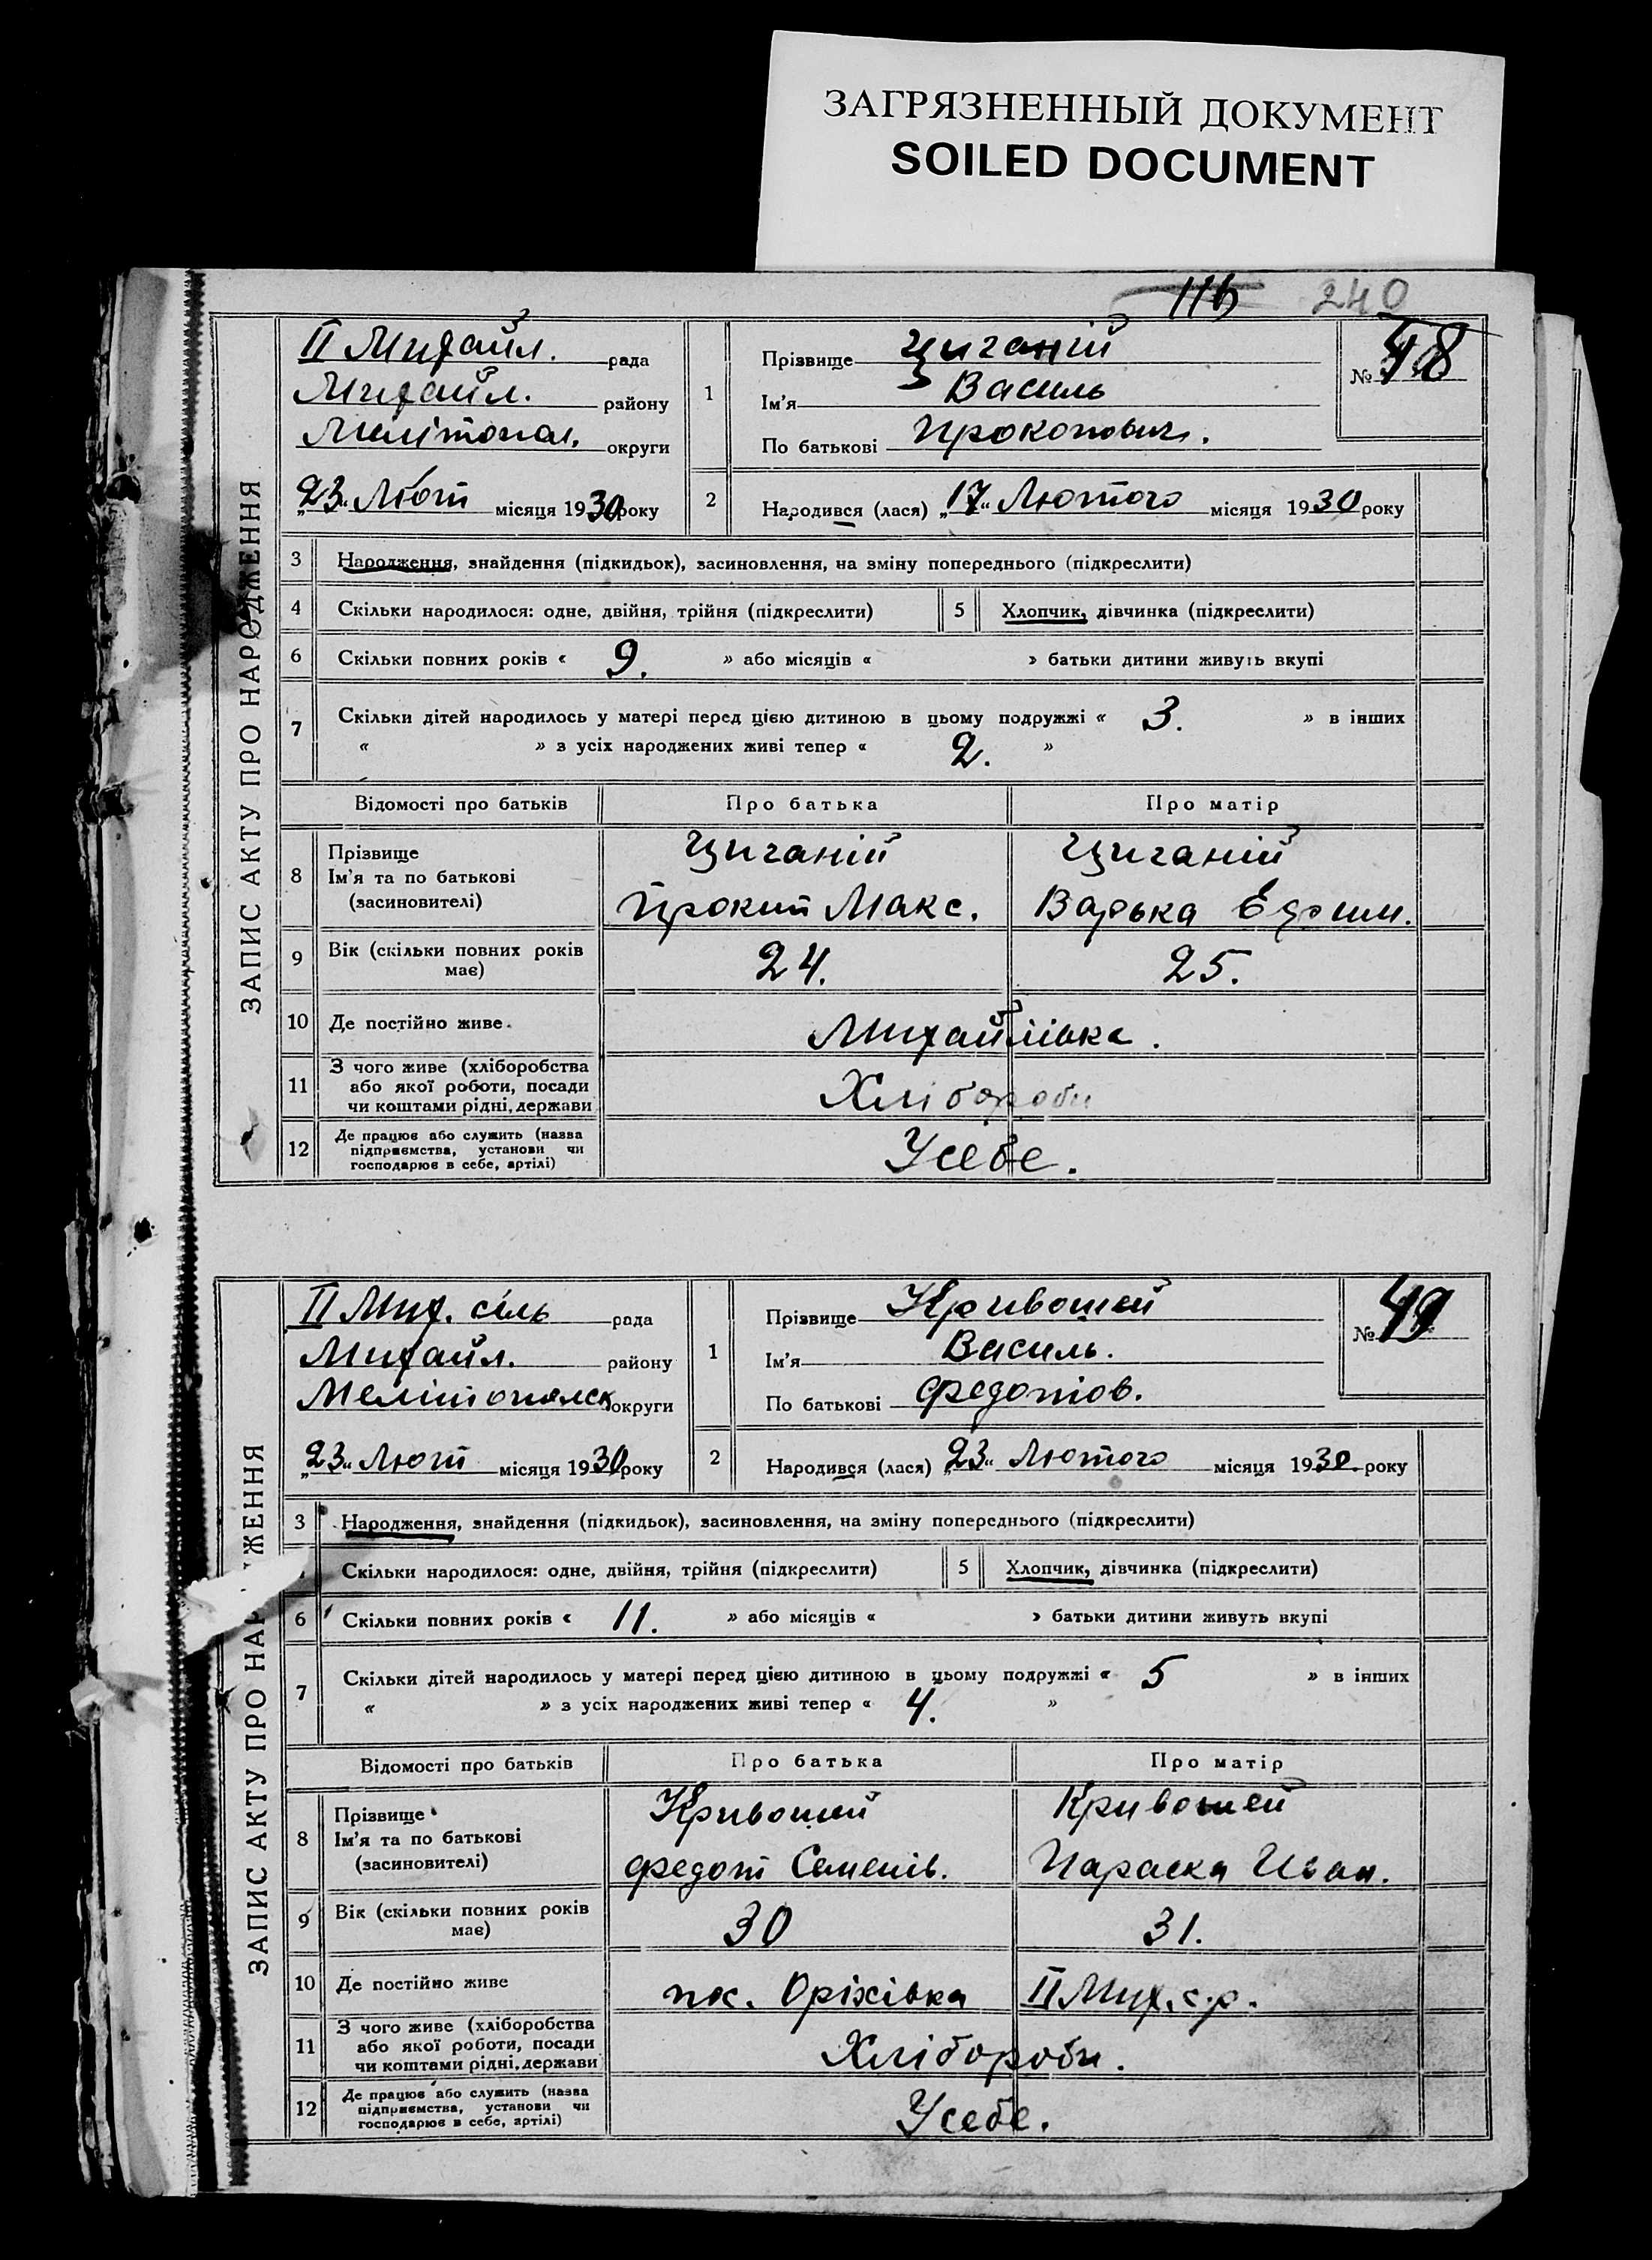 ЗАГРЯЗНЕННЫЙ ДОКУМЕНТ
SOILED DOCUMENT
116 240
ЗАПИС АКТУ ПРО НАРОДЖЕННЯ
II Михайл. рада
Михайл. району
Мелітопол. округи
„23“ Лют місяця 1930 року
1 Прізвище Циганій
Ім'я Василь
По батькові Прокопович.
№ 48
2 Народився (лася) „17“ Лютого місяця 1930 року
3 Народження, знайдення (підкидьок), засиновлення, на зміну попереднього (підкреслити)
4 Скільки народилося: одне, двійня, трійня (підкреслити) 5 Хлопчик, дівчинка (підкреслити)
6 Скільки повних років « 9. » або місяців « » батьки дитини живуть вкупі
7 Скільки дітей народилось у матері перед цією дитиною в цьому подружжі « 3. » в інших
« » з усіх народжених живі тепер « 2. »
Відомості про батьків Про батька Про матір
8 Прізвище Ім'я та по батькові (засиновителі)
Циганій Циганій
Прокип Макс. Варька Ефрим.
9 Вік (скільки повних років має) 24. 25.
10 Де постійно живе Михайлівка.
11 З чого живе (хліборобства
або якої роботи, посади
чи коштами рідні, держави
Хлібороби
12 Де працює або служить (назва
підприємства, установи чи
господарює в себе, артілі)
Усебе.
ЗАПИС АКТУ ПРО НАР ЖЕННЯ
II Мих. сіль рада
Михайл. району
Мелітопольск округи
„23“ Лют місяця 1930 року
1 Прізвище Кривошей
Ім'я Василь.
По батькові Федотов.
№ 49
2 Народився (лася) „23“ Лютого місяця 1930. року
3 Народження, знайдення (підкидьок), засиновлення, на зміну попереднього (підкреслити)
Скільки народилося: одне, двійня, трійня (підкреслити) 5 Хлопчик, дівчинка (підкреслити)
6 Скільки повних років « 11. » або місяців « » батьки дитини живуть вкупі
7 Скільки дітей народилось у матері перед цією дитиною в цьому подружжі « 5 » в інших
« » з усіх народжених живі тепер « 4. »
Відомості про батьків Про батька Про матір
8 Прізвище Ім'я та по батькові (засиновителі)
Кривошей Кривошей
Федот Семенів. Параска Иван.
9 Вік (скільки повних років має) 30 31.
10 Де постійно живе пос. Оріхівка II Мих. с.р.
11 З чого живе (хліборобства
або якої роботи, посади
чи коштами рідні, держави
Хлібороби.
12 Де працює або служить (назва
підприємства, установи чи
господарює в себе, артілі)
Усебе.